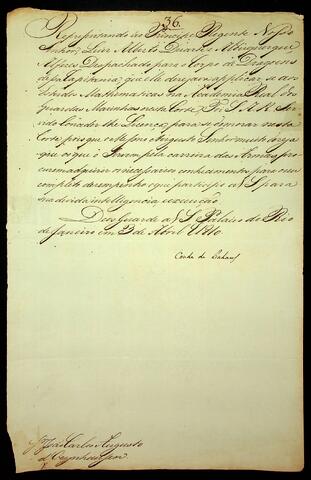 36.
Representando ao Principe Regente Nosso
Senhor, Luiz Alberto Duarte Albuquerque
Alferes Despachado para o Corpo de Dragoens
dessa Capitania, que elle deseja applicar-se aos
Estudos Mathematicos na Academia Real dos
Guardas Marinhas nesta Corte: Foi S. A. R. Ser-
vido Conceder-lhe Licença, para
Corte, pois que o Mesmo Augusto Senhor muito deseja
que os que pela carreira das Armas, pro-
curem adquirir conhecimentos para cum-
completo desempenho: o que participo a V. S. para
sua devida intelligencia e execução.
Deos Guarde a V. S. Palacio do Rio
de Janeiro em 3 de Abril de 1810
Conde de
Snr. João Carlos Augusto
d'Oeynhausen